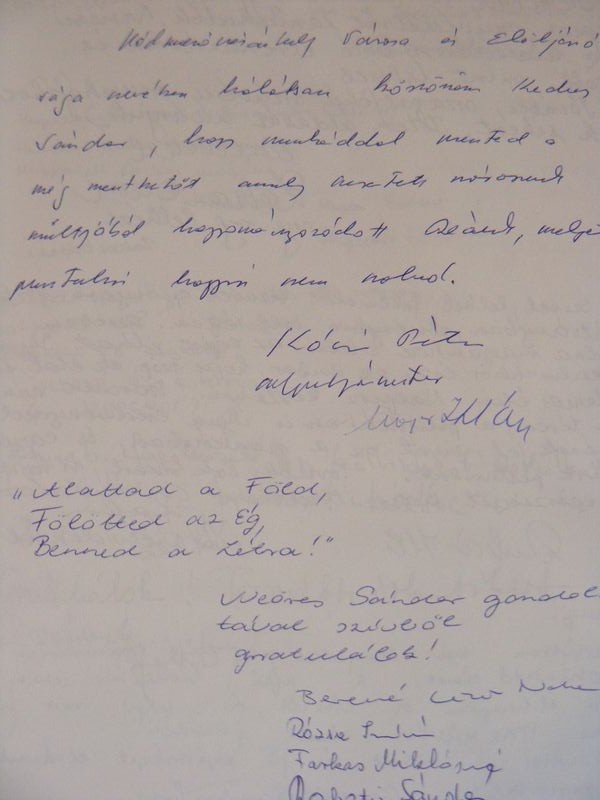 Hódmezővásárhely Város és Elöljáró
sága nevében hálásan köszönöm Kedves
Sándor, hogy munkáddal mented a
még menthetőt amely városunk
múltjából hagyományozódott ránk, melyet
pusztulni hagyni nem szabad.
Kó Péter
alpolgármester
Zoltán
„Alattad a Föld,
Fölötted az Ég,
Benned a Létra!"
Weöres Sándor gondola
tával szívből
gratulálok!
Berényi
Rózsa
Farkas Miklósné
Sándor